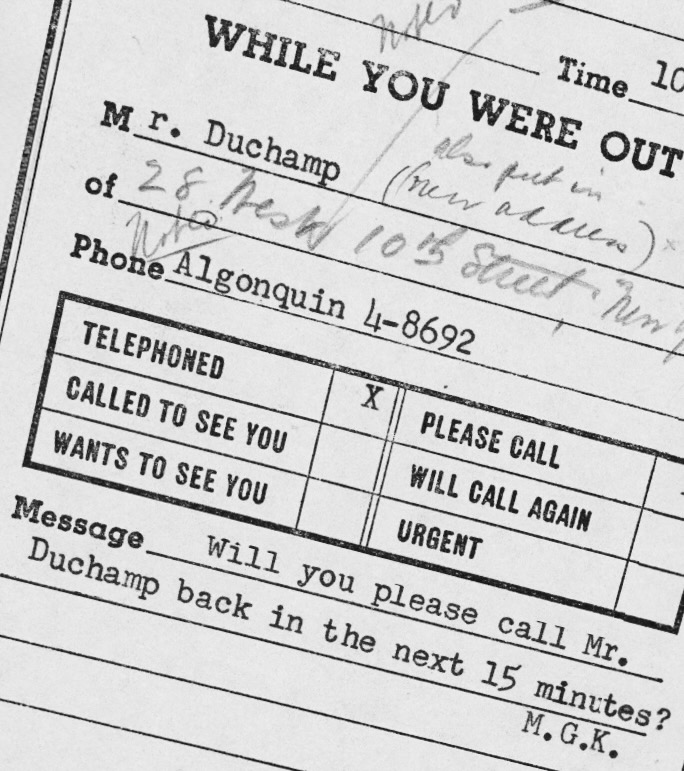 Noted
Time 10
WHILE YOU WERE OUT
Mr. Duchamp
also put in
(new address)
of 28 West 10th Street, New
Noted
Phone Algonquin 4-8692
TELEPHONED X PLEASE CALL
CALLED TO SEE YOU WILL CALL AGAIN
WANTS TO SEE YOU URGENT
Message Will you please call Mr.
Duchamp back in the next 15 minutes?
M.G.K.